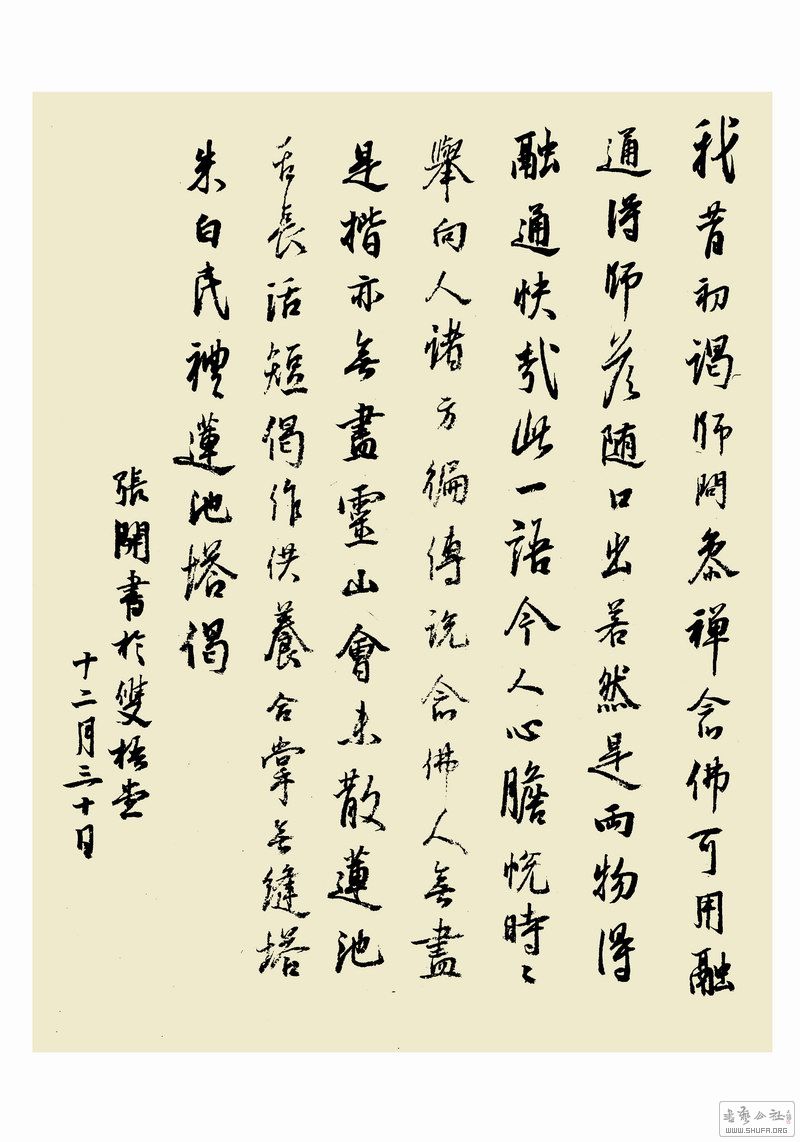 我昔初謁師問參禪念佛可用融
通得師答随口出若然是兩物得
融通快哉此一語令人心膽悦時〻
舉向人諸方徧傳説念佛人無盡
是楷亦無盡靈山會未散蓮池
舌長活短偈作供養合掌無縫塔
朱白民禮蓮池塔偈
張開書於雙梧堂
十二月三十日
書藝公社
WWW.SHUFA.ORG